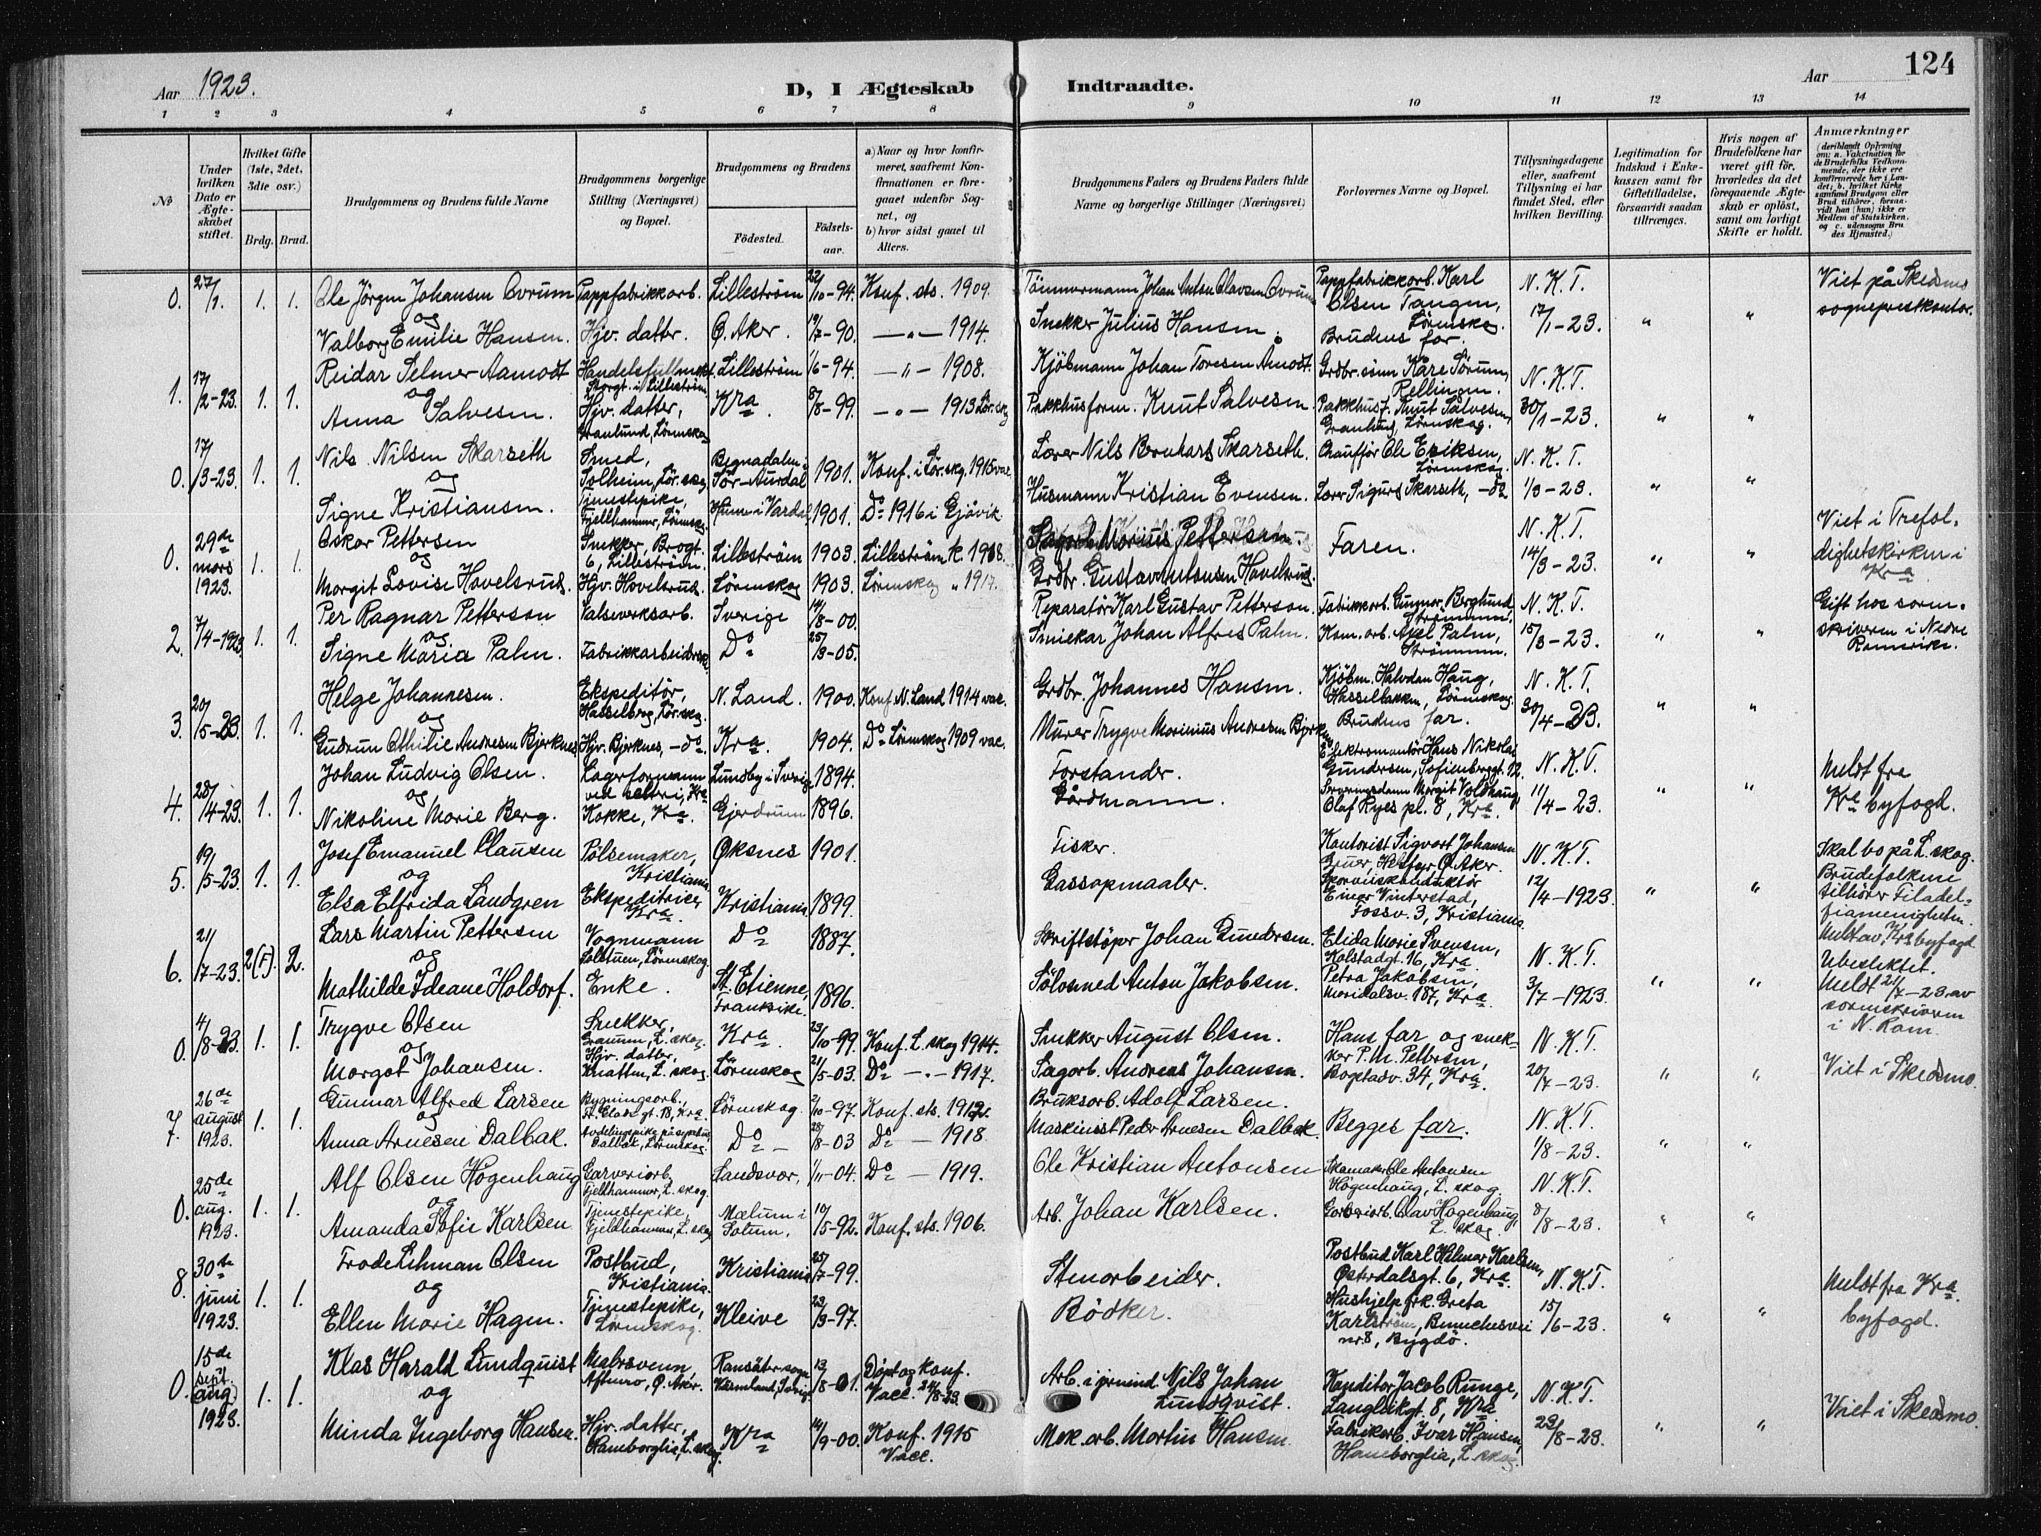 Aar 1923.
D, I Ægteskab Indtraadte.
Aar
124
1 2 3 4 5 6 7 8 9 10 11 12 13 14
No
Under hvilken Dato er Ægteskabet stiftet.
Hvilket Gifte (1ste, 2det, 3die osv.)
Brdg. Brud.
Brudgommens og Brudens fulde Navne
Brudgommens borgerlige Stilling (Næringsvei) og Bopæl.
Brudgommens og Brudens
Fødested. Fødselsaar.
a) Naar og hvor konfirmeret, saafremt Konfirmationen er foregaaet udenfor Sognet, og
b) hvor sidst gaaet til Alters.
Brudgommens Faders og Brudens Faders fulde Navne og borgerlige Stillinger (Næringsvei)
Forlovernes Navne og Bopæl.
Tillysningsdagene eller, saafremt Tillysning ei har fundet Sted, efter hvilken Bevilling.
Legitimation for Indskud i Enkekassen samt for Giftetilladelse, forsaavidt saadan tiltrænges.
Hvis nogen af Brudefolkene har været gift før, hvorledes da det foregaaende Ægteskab er opløst, samt om lovligt Skifte er holdt.
Anmærkninger
(deriblandt Oplysning om: a. Vakcination for de Brudefolks Vedkommende, der ikke ere konfirmerede her i Landet; b. hvilket Kirkesamfund Brudgom eller Brud tilhører, forsaavidt han (hun) ikke er Medlem af Statskirken, og c. udensogns Brudes Hjemsted.)
0. 27/1. 1. 1. Ole Jörgen Johansen Ovrum Pappfabrikkarb. Lilleström 22/10-94. Konf. sts. 1909. Tömmermann Johan Anton Olavsen Ovrum Pappfabrikkarb. Karl Olsen Tangen, Lörenskog N. K. T. Viet på Skedsmo sogneprestkontor.
og
Valborg Emilie Hansen. Hjv. datter. Ö. Aker. 19/7-90. —„— 1914. Snekker Julius Hansen. Brudens far. 17/1-23. „ „
1. 17/2-23. 1. 1. Reidar Selmer Aamodt Lilleström 1/6-94. —„— 1908. Kjöbmann Johan Toresen Åmodt. Grdbr. sönn Kåre Sörum, Rellingen. N. K. T.
og
Anna Salvesen. Hjv. datter, Granlund, Lörenskog Kra. 8/8-99. —„— 1913 Lör.skg Pakkhusform. Knut Salvesen. Pakkhusf. Knut Salvesen, Granlund, Lörenskog. 30/1-23. „ „
0. 17/3-23. 1. 1. Nils Nilsen Skarseth Smed, Solheim, Lör.skog Begnadalen i Sör-Aurdal 1901. Konf. i Lör.skg. 1915 vac. Lærer Nils Bernhard Skarseth. Chaufför Ole Eriksen, Lörenskog. N. K. T.
og
Signe Kristiansen. Tjenestepike, Fjellhammer, Lörenskog. Hunn i Vardal 1901. Do 1916 i Gjövik Husmann Kristian Evensen. Lærer Sigurd Skarseth, -do- 1/3-23. „ „
0. 29de mars 1923. 1. 1. Oskar Pettersen Snekker, Brogt. 6, Lilleström. Lilleström 1903. Lilleström k. 1918. Sagarb. Marius Pettersen Faren. N. K. T. Viet i Trefoldighetskirken i Kra
og
Margit Lovise Hovelsrud. Hjv. Hovelsrud. Lörenskog 1903. Lörenskog „ 1917. Grdbr. Gustav Antonsen Hovelsrud. 14/3-23. „ „
2. 7/4-1923. 1. 1. Per Ragnar Petterson Valseverksarb. Sverige 14/8-00. Reparatör Karl Gustav Petterson. Fabrikkarb. Gunnar Berglund, Strömmen. N. K. T. Gift hos sorenskriveren i Nedre Romerike.
og
Signe Maria Palm. Fabrikkarbeiderske Do 25/3-05. Smiekar Johan Alfred Palm. Kom. arb. Axel Palm, Strömmen. 15/3-23. „ „
3. 20/5-23 1. 1. Helge Johannesen. Ekspeditör, Hasselberg, Lör.skog. N. Land. 1900. Konf. N. Land 1914 vac. Grdbr. Johannes Hansen. Kjöbm. Halvdan Haug, Hasselbakken, Lörenskog. N. K. T.
og
Gudrun Othilie Andresen Bjerknes Hjv. Bjerknes, -do-. Kra. 1904. Do Lörenskog 1909 vac. Murer Trygve Marinius Andresen Bjerknes Brudens far. 30/4-23. „ „
4. 28/4-23. 1. 1. Johan Ludvig Olsen. Lagerformann Lundby i Sverige 1894. Forstander. Elektromontör Hans Nikolai Gundersen, Sofienberggt. 12. N. K. T. Meldt fra Kra byfogd.
og
Nikoline Marie Berg. Kokke, Kra. Gjerdrum 1896. Gårdmann. Serveringsdame Margit Voldhaug, Olaf Ryes pl. 8, Kra. 11/4-23. „ „
5. 19/5-23. 1. 1. Josef Emanuel Clausen Pölsemaker, Kristiania Öksnes 1901. Fisker. Kontorist Sigvart Johansen Ö. Aker. N. K. T. Skal bo på L.skog. Brudefolkene tilhörer Filadelfiamenigheten. Meldt av Kra byfogd.
og
Elsa Elfrida Landgren Ekspeditrice, Kra. Kristiania 1899. Gassopmaaler. Einar Winterstad, Fossv. 3, Kristiania. 12/4-1923. „ „
6. 21/7-23. 2(F). 2. Lars Martin Pettersen Vognmann Solstuen, Lörenskog Do 1887. Skriftstöper Johan Gundersen. Elida Marie Svensen, Kolstadgt. 16, Kra. N. K. T. Ubeslektet.
og
Mathilde Ideane Holdorf. Enke. St. Etienne, Frankrike. 1896. Sölvsmed Anton Jakobsen. Petra Jakobsen, Maridalsv. 187, Kra. 3/7-1923. „ „ Meldt 21/7-23 av sorenskriveren i N. Rom.
0. 4/8-23. 1. 1. Trygve Olsen Snekker, Granum, L. skog. Kra. 23/10-99. Konf. L. skog 1914. Snekker August Olsen. Hans far og snekker P. M. Pettersen, N. K. T.
og
Margot Johansen. Hjv. datter, Knatten, L. skog. Lörenskog 21/5-03. Do —„— 1917. Sagarb. Andreas Johansen. Bogstadv. 34, Kra. 20/7-23. „ „ Viet i Skedsmo.
7. 26de august 1923. 1. 1. Gunnar Alfred Larsen Bygningsarb., St. Olavsgt. 18, Kra. Lörenskog. 2/10-97. Konf. sts. 1912. Bruksarb. Adolf Larsen. Begges far. N. K. T.
og
Anna Arnesen Dalbak. Dalbak, Lörenskog. Do — 28/8-03 Do — 1918. Maskinist Peder Arnesen Dalbak. 1/8-23. „ „
0. 25de aug. 1923. 1. 1. Alf Olsen Högenhaug Garveriarb. Fjellhammer, L. skog. Sandsvær, 1/11-04. Do — 1919. Ole Kristian Antonsen Skomaker Ole Antonsen Högenhaug, L. skog. N. K. T.
og
Amanda Sofie Karlsen Tjenestepike, Fjellhammer, L. skog Mælum i Solum. 10/5-92. Konf. sts. 1906. Arb. Johan Karlsen. Garveriarb. Olav Högenhaug, L. skog. 8/8-23. „ „
8. 30te juni 1923. 1. 1. Frode Lihman Olsen Postbud, Kristiania. Kristiania 25/7-99. Stenarbeider. Postbud Karl Hilmar Karlsen, Österdalsgt. 6, Kra. N. K. T. Meldt fra Kra byfogd.
og
Ellen Marie Hagen. Tjenestepike, Lörenskog. Kleive 23/3-97. Bödker. Hushjelp frk. Greta Karlström, Bunnchesvei nr 8, Bygdö. 15/6-23. „ „
0. 15de sept. (aug) 1923. 1. 1. Klas Harald Lundquist Malersvenn, Ö. Aker. Ransäter sogn Värmland, Sverige 13/8-01. Döpt og konf. Vacc. 21/8-23. Arb. i grunind. Nils Johan Lundqvist. Konditor Jacob Runge, Langleikgt. 8, Kra N. K. T. Viet i Skedsmo.
og
Minda Ingeborg Hansen. Hjv. datter, Haneborglia, L. skog. Kra 14/9-00. Konf. 1915 Vacc. Mek. arb. Martin Hansen. Fabrikarb. Ivar Hansen, Haneborglia, L. skog 23/8-23. „ „